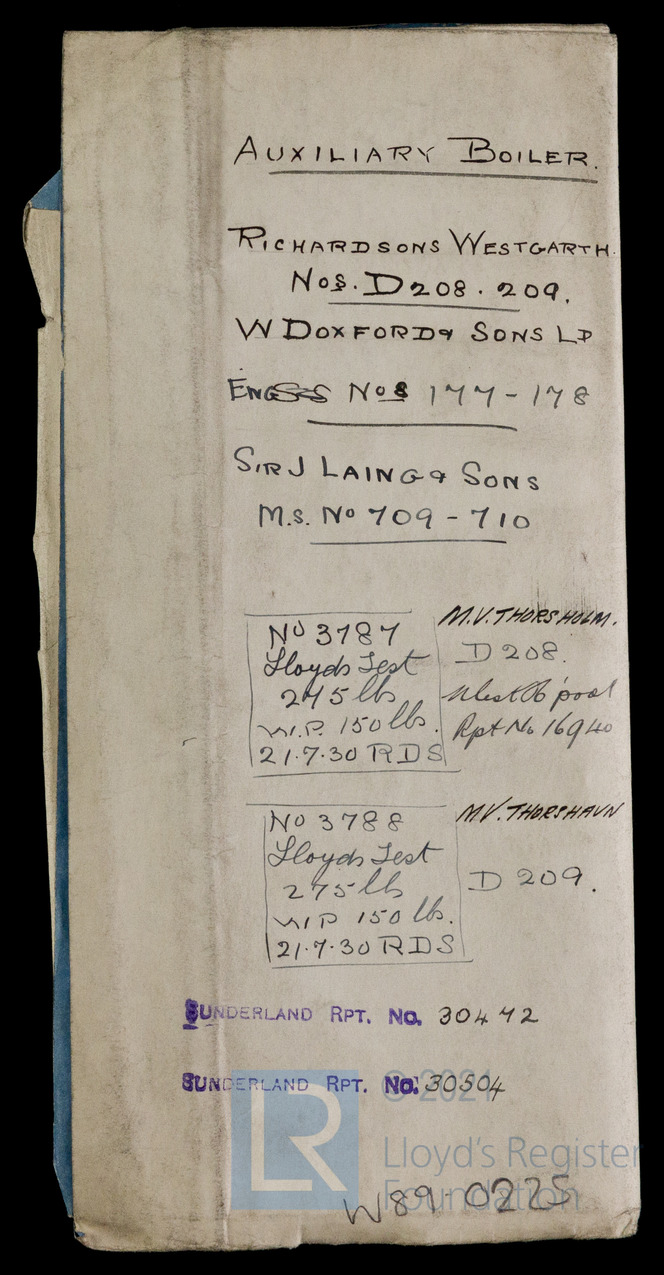 AUXILIARY BOILER.
RICHARDSONS WESTGARTH.
Nos. D208. 209.
W DOXFORD & SONS LD
ENG Nos 177-178
SIR J LAING & SONS
M.S. No 709-710
No 3787
Lloyds Test
275 lbs
W.P. 150 lbs.
21.7.30 RDS
M.V. THORSHOLM.
D 208.
West H'pool
Rpt No 16940
No 3788
Lloyds Test
275 lb
W.P 150 lb.
21.7.30 RDS
M.V. THORSHAVN
D 209.
SUNDERLAND RPT. No. 30472
SUNDERLAND RPT. No. 30504
© 2021
LR
Lloyd's Register
Foundation
W89-0225